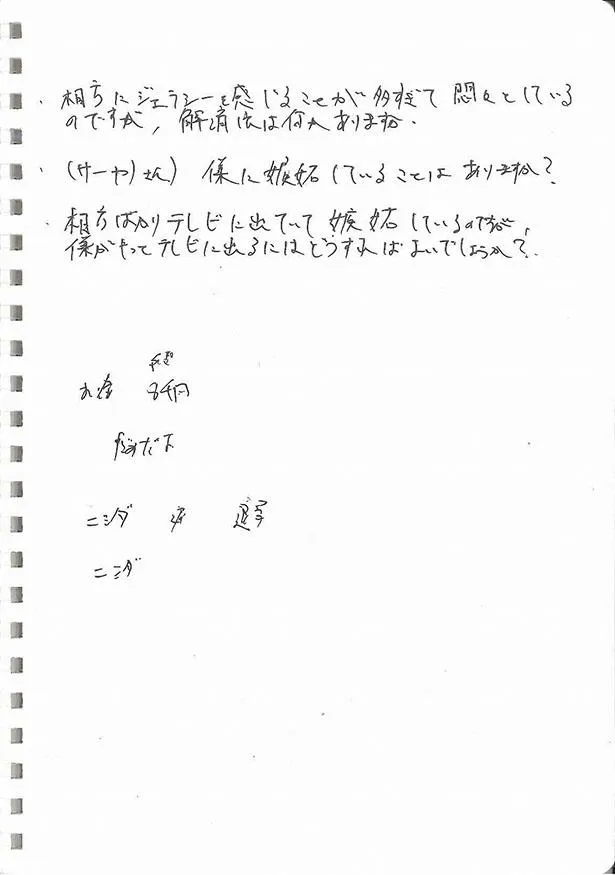 ・相方にジェラシーを感じることが多すぎて悶々としている
のですが、解消法は何かありますか.
・(サーヤ)さん) 僕に嫉妬していることはありますか?
・相方ばかりテレビに出ていて嫉妬しているのですが、
僕がやってテレビに出るにはどうすればよいでしょうか?
お金 8千円
ニシダ 退学
ニシダ